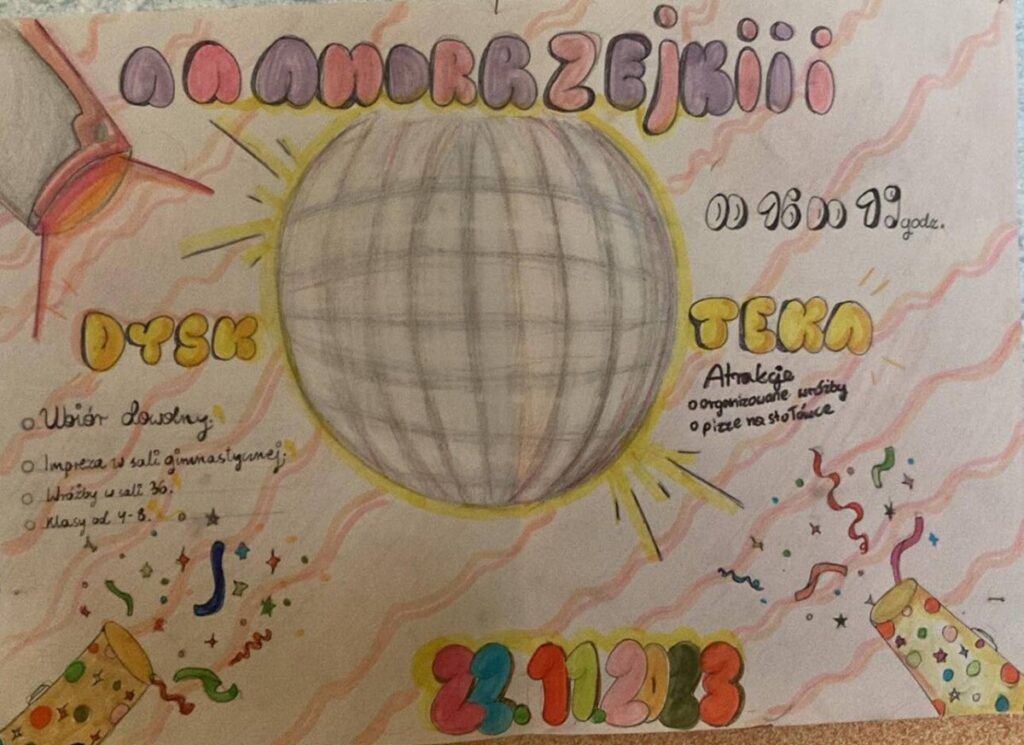 AAANDRRZEJKiii
OD 16 DO 19 godz.
DYSK TEKA
Atrakcje
o organizowane wróżby
o pizze na stołówce
o Ubiór dowolny.
o Impreza w sali gimnastycznej;
o Wróżby w sali 36.
o Klasy od 4-8.
22.11.2023